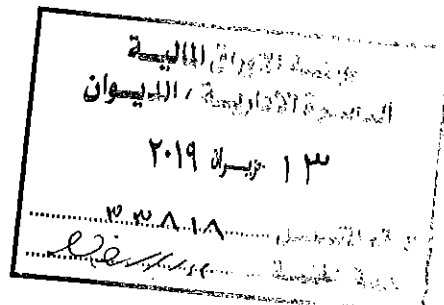 هيئة الأوراق المالية
الدائرة الإدارية / الديوان
١٣ حزيران ٢٠١٩
الرقم المتسلسل ٣٣٨١٨
الجهة المختصة